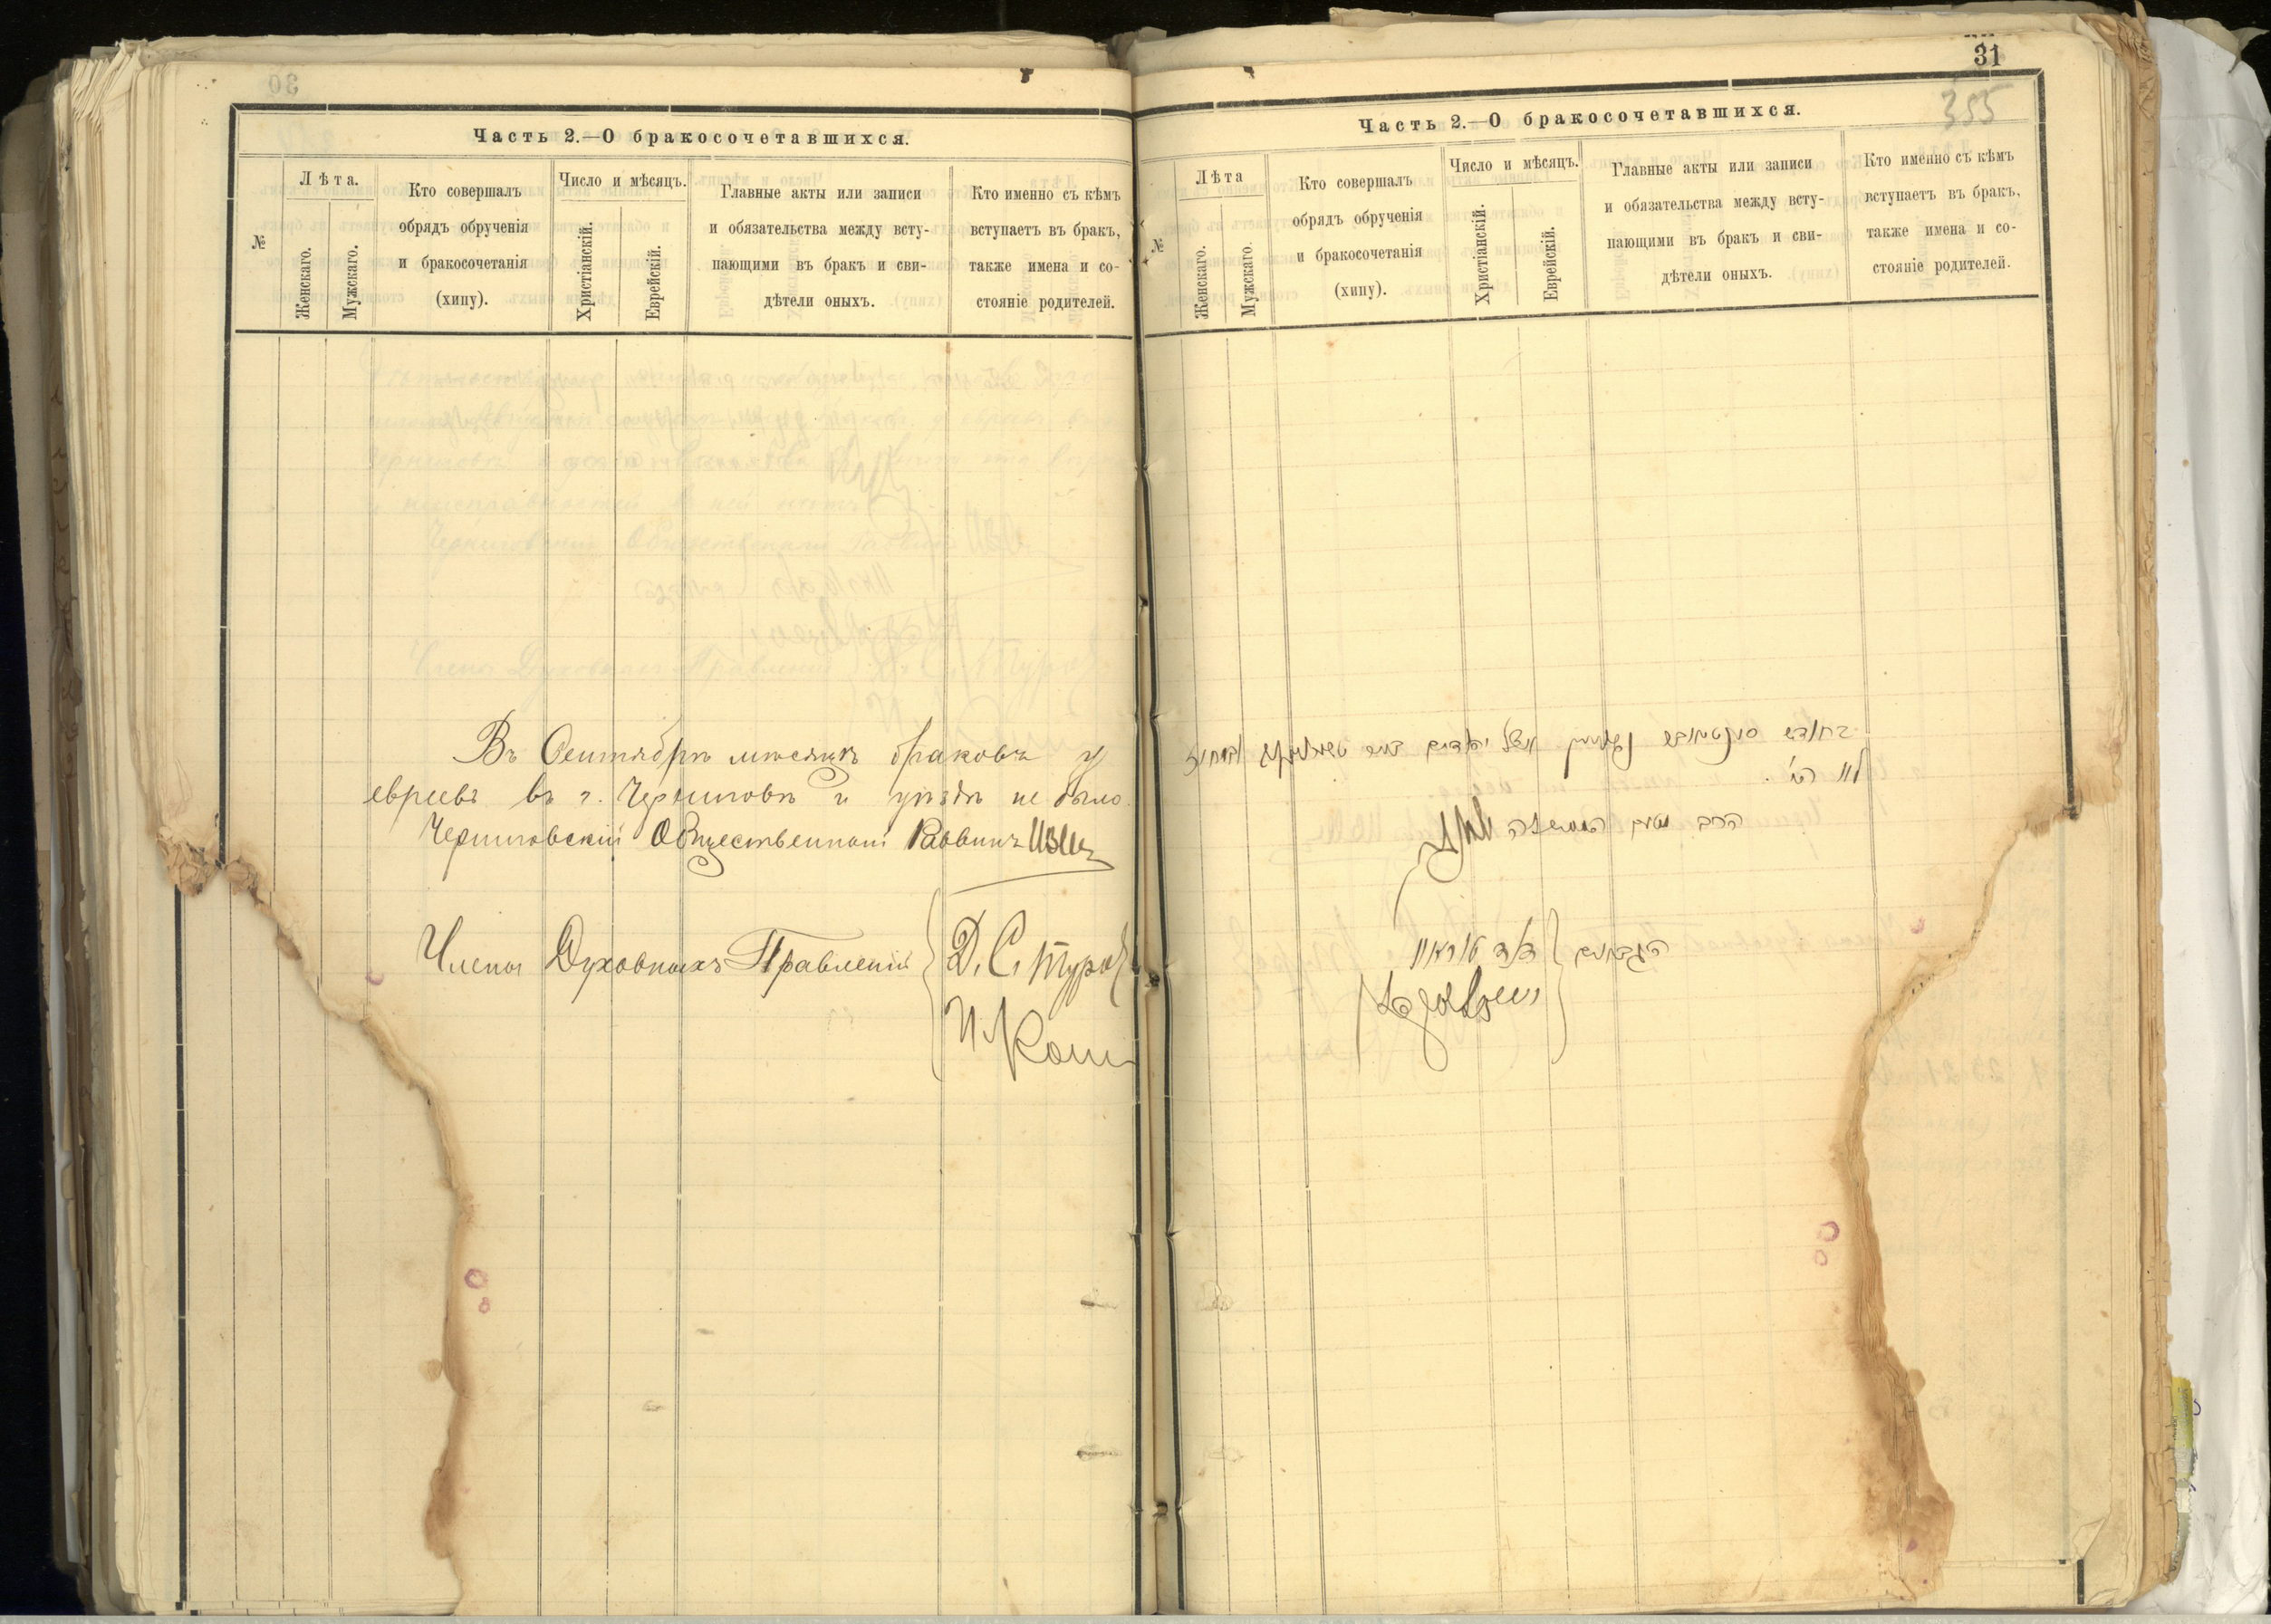 Часть 2.—О бракосочетавшихся.
№
Лѣта.
Женскаго.
Мужскаго.
Кто совершалъ
обрядъ обрученія
и бракосочетанія
(хипу).
Число и мѣсяцъ.
Христіанскій.
Еврейскій.
Главные акты или записи
и обязательства между всту-
пающими въ бракъ и сви-
дѣтели оныхъ.
Кто именно съ кѣмъ
вступаетъ въ бракъ,
также имена и со-
стояніе родителей.
Въ Сентябрѣ мѣсяцѣ браковъ у
евреевъ въ г. Черниговѣ и уѣздѣ не было.
Черниговскій Общественный Раввинъ
Члены Духовныхъ Правленій
Д. С. Туров
И. Кош
31
355
Часть 2.—О бракосочетавшихся.
№
Лѣта
Женскаго.
Мужскаго.
Кто совершалъ
обрядъ обрученія
и бракосочетанія
(хипу).
Число и мѣсяцъ.
Христіанскій.
Еврейскій.
Главные акты или записи
и обязательства между всту-
пающими въ бракъ и сви-
дѣтели оныхъ.
Кто именно съ кѣмъ
вступаетъ въ бракъ,
также имена и со-
стояніе родителей.
בחודש אצל יהודים בעיר
לא הי׳.
הרב
הגבאים